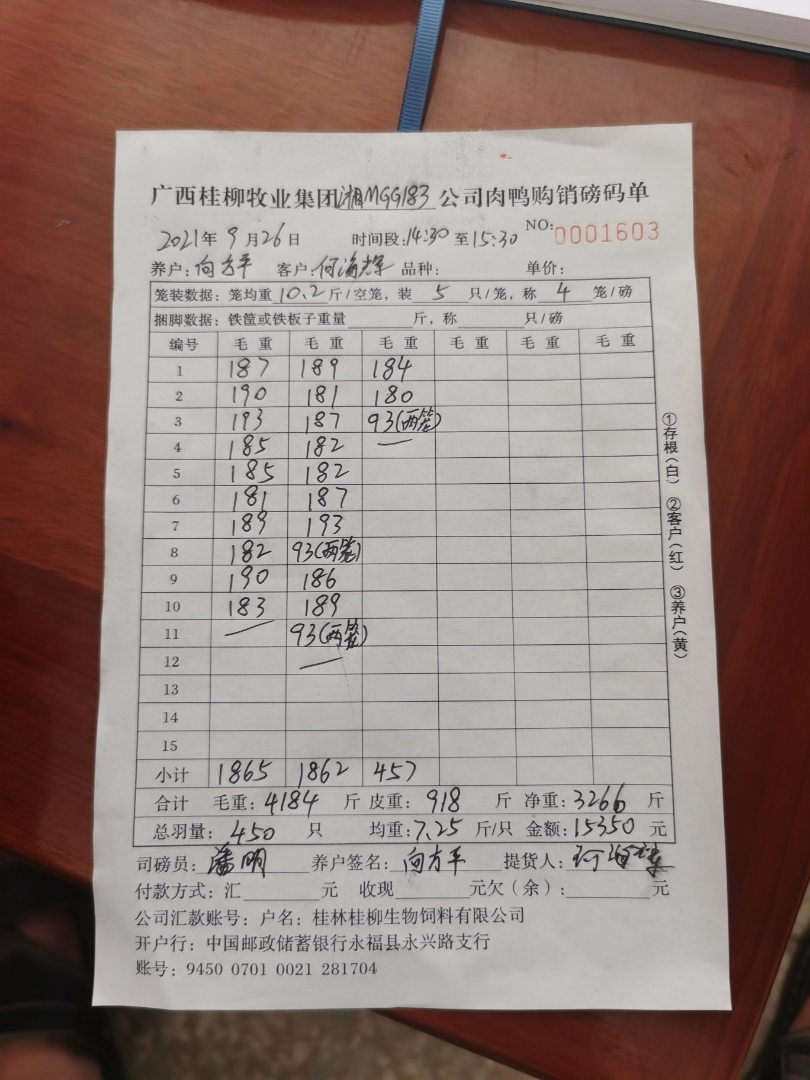 广西桂柳牧业集团湘MGG183公司肉鸭购销磅码单
2021年9月26日 时间段:14:30至15:30 NO:0001603
养户:向方平 客户:何海辉 品种: 单价:
笼装数据:笼均重10.2斤/空笼,装5只/笼,称4笼/磅
捆脚数据:铁筐或铁板子重量 斤,称 只/磅
编号 毛重 毛重 毛重 毛重 毛重 毛重
1 187 189 184
2 190 181 180
3 193 187 93(两笼)
4 185 182 —
5 185 182
6 181 187
7 189 193
8 182 93(两笼)
9 190 186
10 183 189
11 — 93(两笼)
12 —
13
14
15
小计 1865 1862 457
合计 毛重:4184 斤 皮重:918 斤 净重:3266 斤
总羽量:450 只 均重:7.25斤/只 金额:15350元
司磅员:潘明 养户签名:向方平 提货人:何海辉
付款方式:汇 元 收现 元欠(余): 元
公司汇款账号:户名:桂林桂柳生物饲料有限公司
开户行:中国邮政储蓄银行永福县永兴路支行
账号:9450 0701 0021 281704
①存根(白) ②客户(红) ③养户(黄)